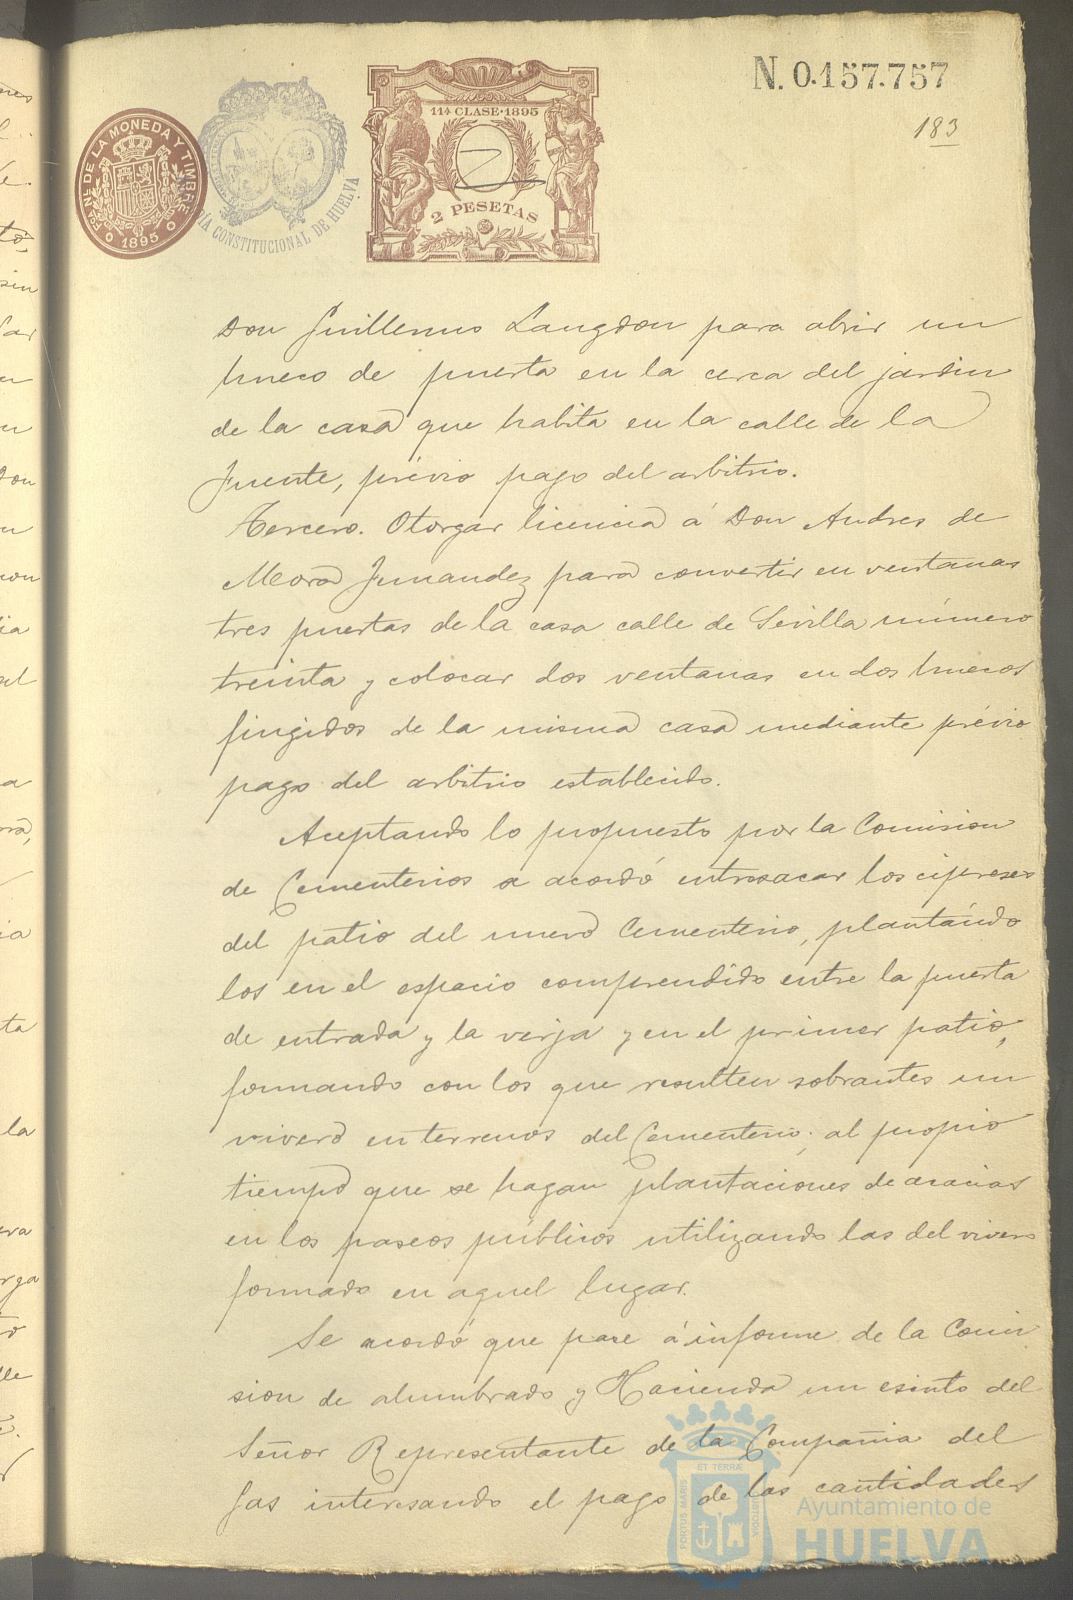 N. 0.157.757
183
Fca. Nal. DE LA MONEDA Y TIMBRE
1895
CONSTITUCIONAL DE HUELVA
11ª CLASE·1895
2 PESETAS
Don Guillermo Langdon para abrir un
hueco de puerta en la cerca del jardin
de la casa que habita en la calle de la
Fuente, prévio pago del arbitrio.
Tercero. Otorgar licencia á Don Andres de
Mora Fernandez para convertir en ventanas
tres puertas de la casa calle de Sevilla número
treinta y colocar dos ventanas en dos huecos
fingidos de la misma casa mediante prévio
pago del arbitrio establecido.
Aceptando lo propuesto por la Comision
de Cementerios se acordó entresacar los cipreses
del patio del nuevo Cementerio, plantándo
los en el espacio comprendido entre la puerta
de entrada y la verja y en el primer patio,
formando con los que resulten sobrantes un
vivero en terrenos del Cementerio; al propio
tiempo que se hagan plantaciones de acacias
en los paseos públicos utilizando las del vivero
formado en aquel lugar.
Se acordó que pase á informe de la Comi
sion de alumbrado y Hacienda un escrito del
Señor Representante de la Compañia del
Gas interesando el pago de las cantidades
PORTUS MARIS ET TERRÆ CUSTODIA
Ayuntamiento de
HUELVA